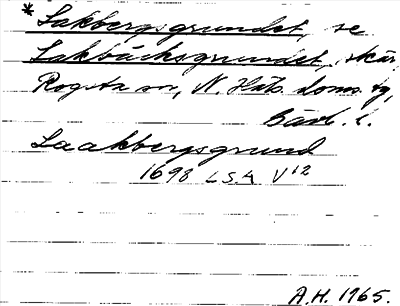 *Lakbergsgrundet, se
Lakbäcksgrundet, skär,
Rogsta sn, N. Häls. doms. tg,
Gävl. l.
Laakbergsgrund
1698 LSA V12
A.H. 1965.